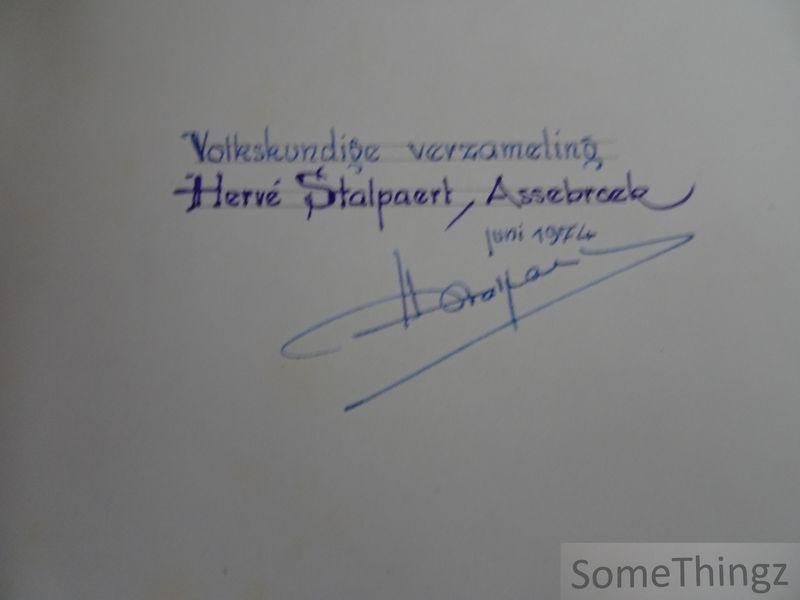 Volkskundige verzameling
Hervé Stalpaert, Assebroek
juni 1974
HStalpaert
SomeThingz